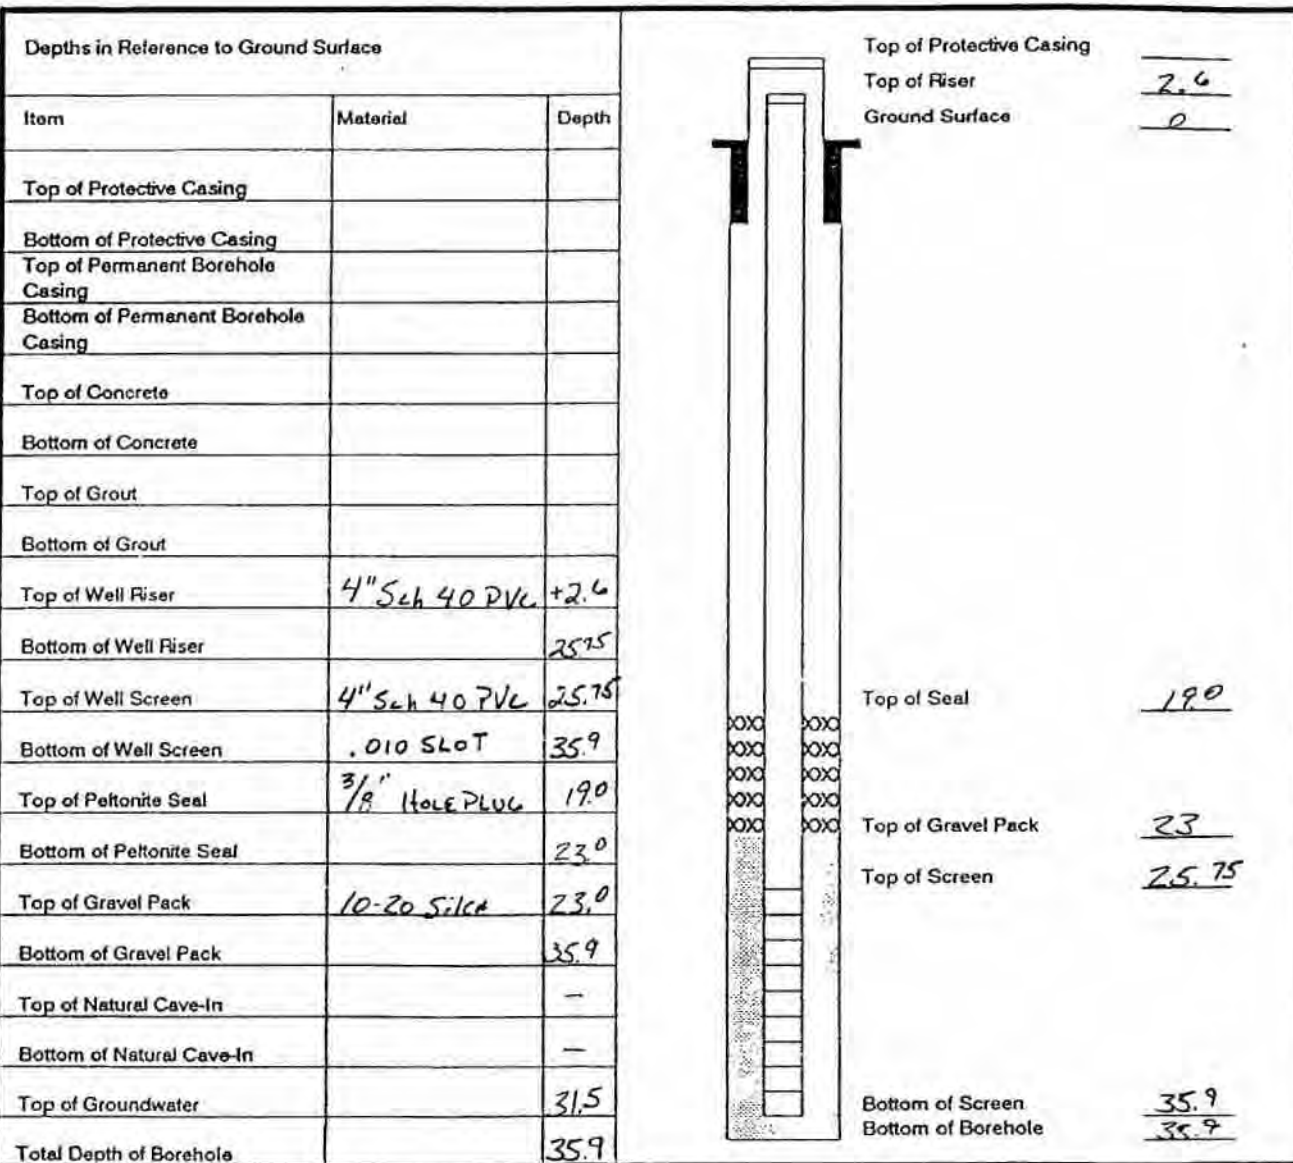 Depths in Reference to Ground Surface
Item Material Depth
Top of Protective Casing
Bottom of Protective Casing
Top of Permanent Borehole
Casing
Bottom of Permanent Borehole
Casing
Top of Concrete
Bottom of Concrete
Top of Grout
Bottom of Grout
Top of Well Riser 4" Sch 40 PVC +2.6
Bottom of Well Riser 25.75
Top of Well Screen 4" Sch 40 PVC 25.75
Bottom of Well Screen .010 SLOT 35.9
Top of Peltonite Seal 3/8" HOLE PLUG 19.0
Bottom of Peltonite Seal 23.0
Top of Gravel Pack 10-20 Silca 23.0
Bottom of Gravel Pack 35.9
Top of Natural Cave-In —
Bottom of Natural Cave-In —
Top of Groundwater 31.5
Total Depth of Borehole 35.9
Top of Protective Casing
Top of Riser 2.6
Ground Surface 0
Top of Seal 19.0
Top of Gravel Pack 23
Top of Screen 25.75
Bottom of Screen 35.9
Bottom of Borehole 35.9